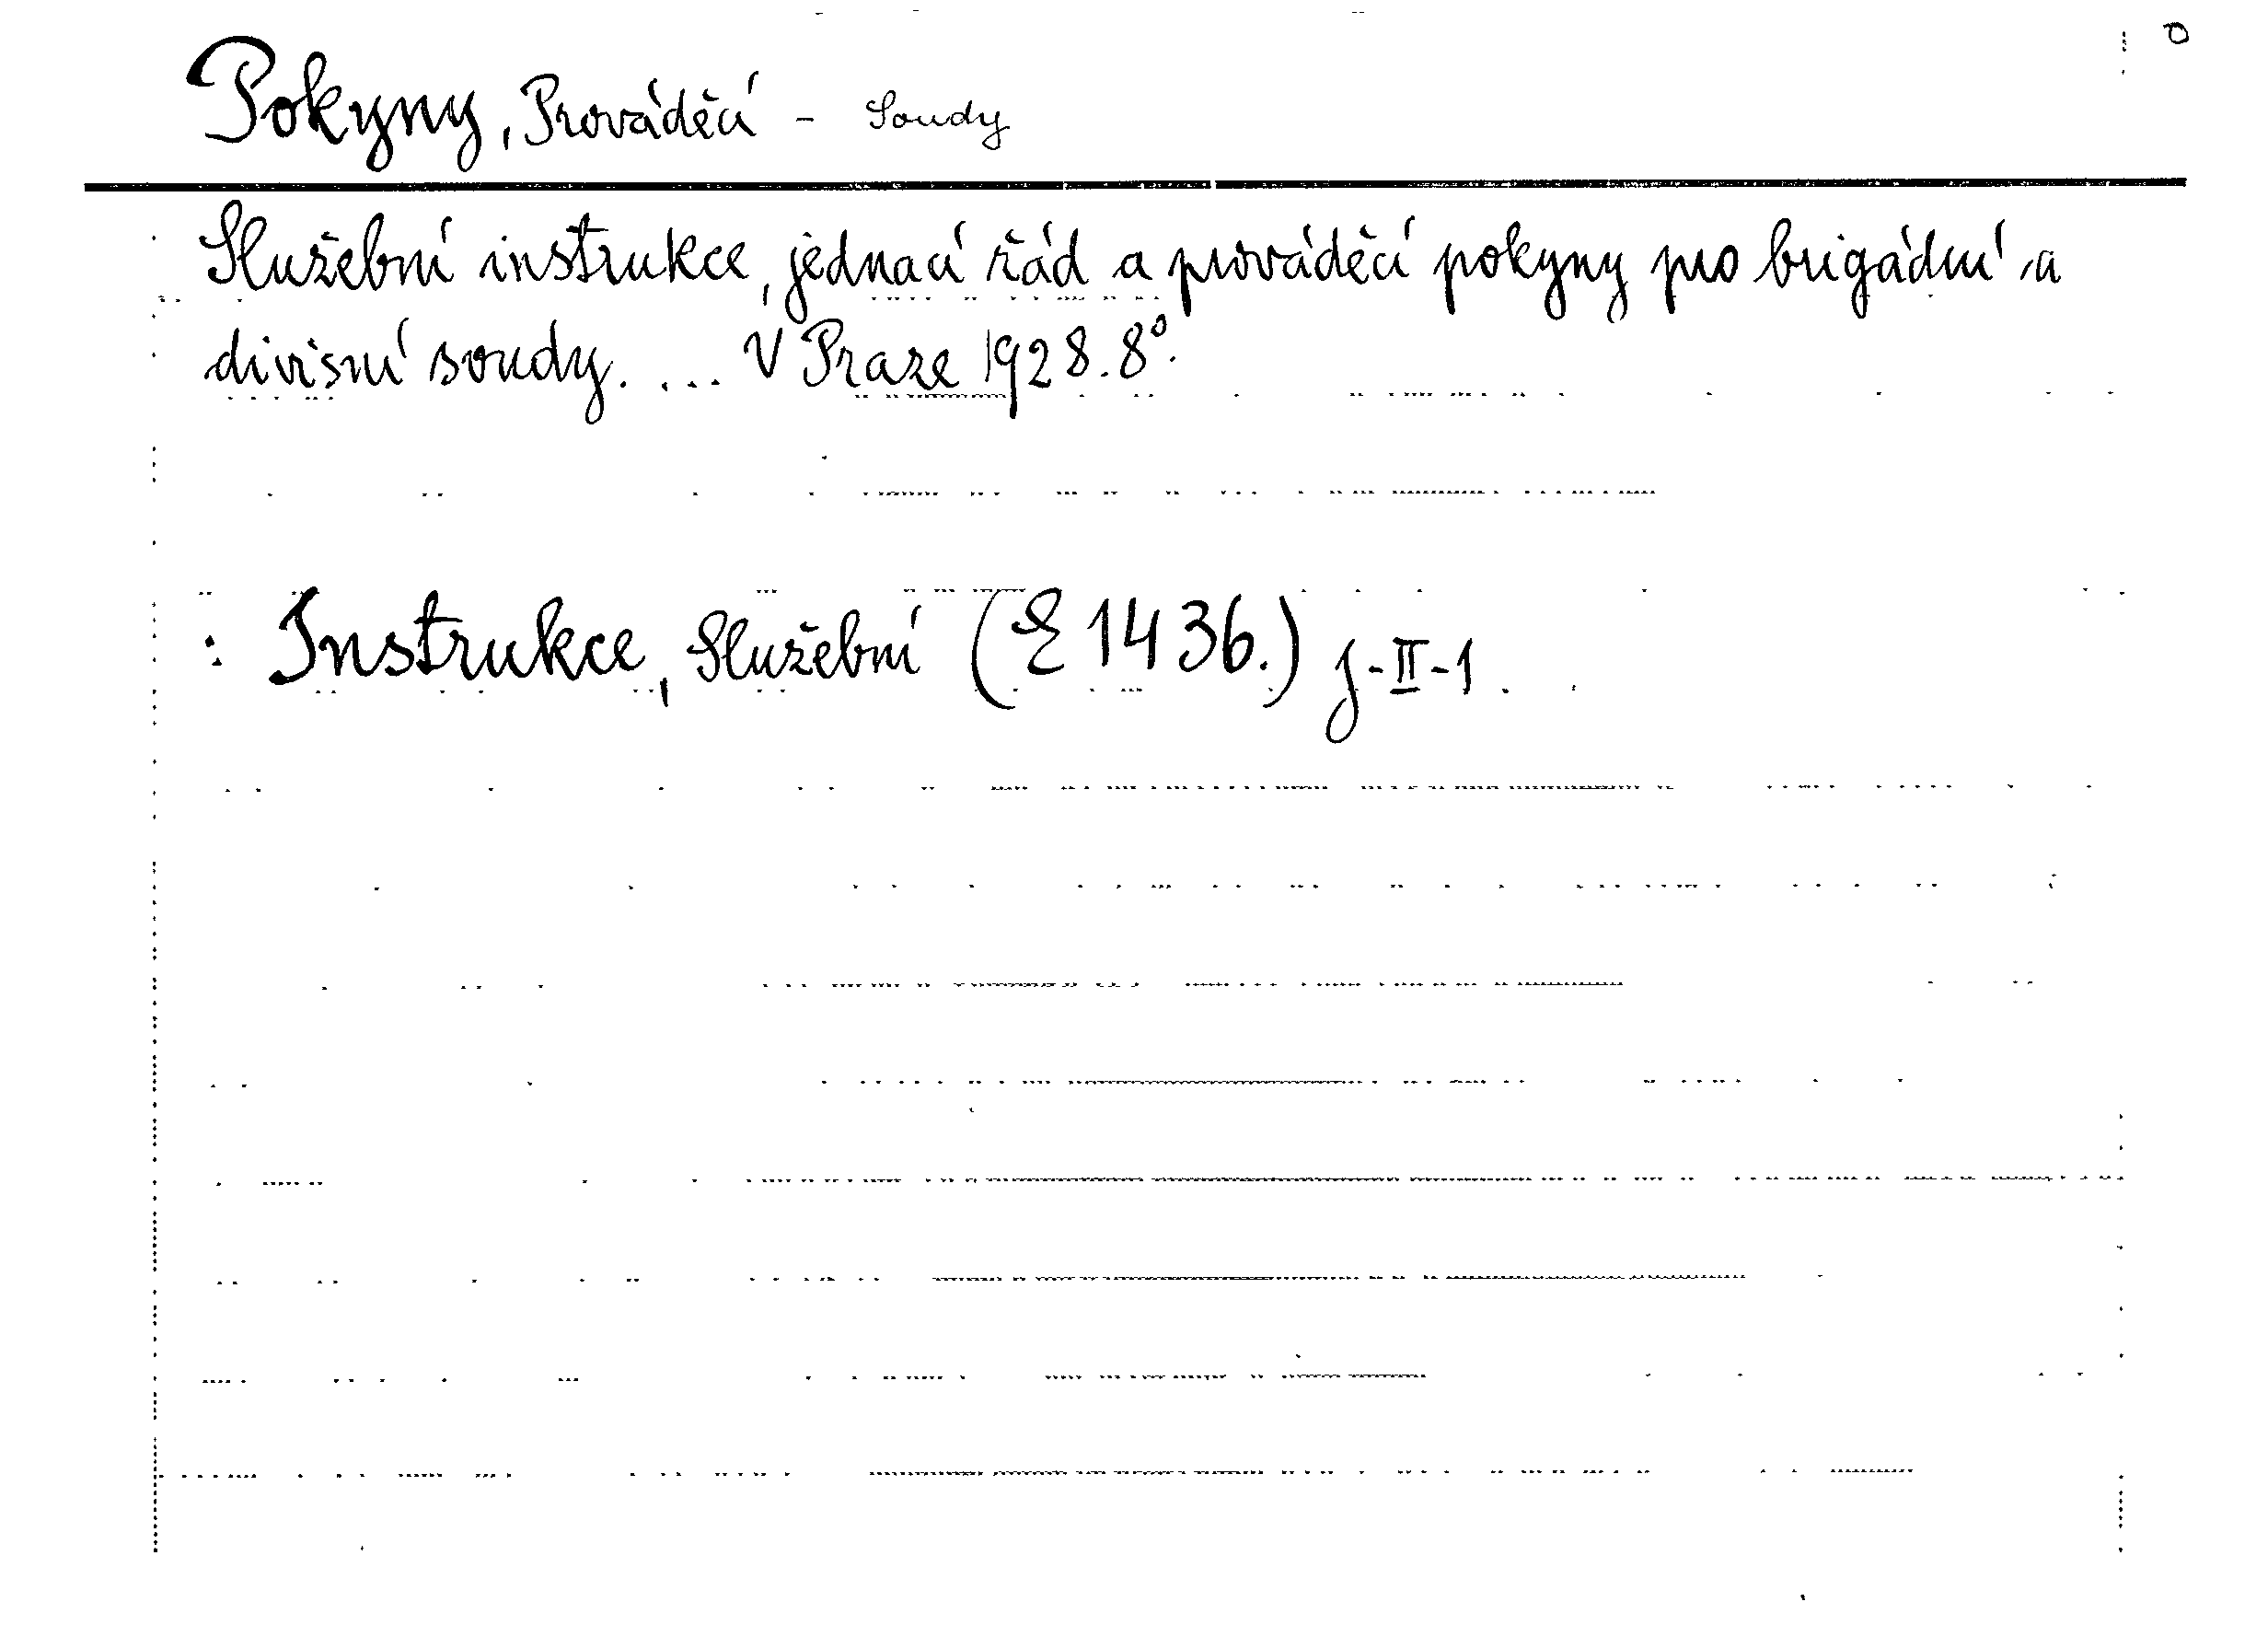 Pokyny, Prováděcí - Soudy
Služební instrukce, jednací řád a prováděcí pokyny pro brigádní a
divisní soudy. ... V Praze 1928. 8°.
: Instrukce, Služební (E 1436.) j-II-1.